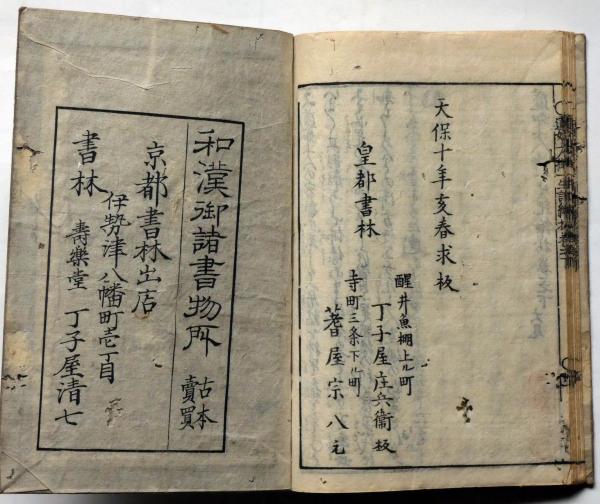 天保十年亥春求板
皇都書林
醒井魚棚上ル町
丁子屋庄兵衞板
寺町三条下ル町
蓍屋宗八元
和漢御諸書物所
古本
賣買
京都書林出店
伊勢津八幡町壱丁目
書林
壽樂堂 丁子屋清七